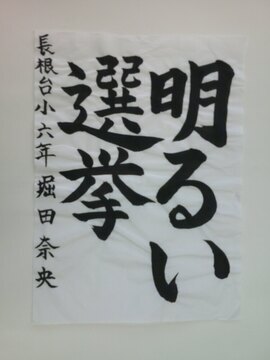 明るい
選挙
長根台小六年 堀田奈央